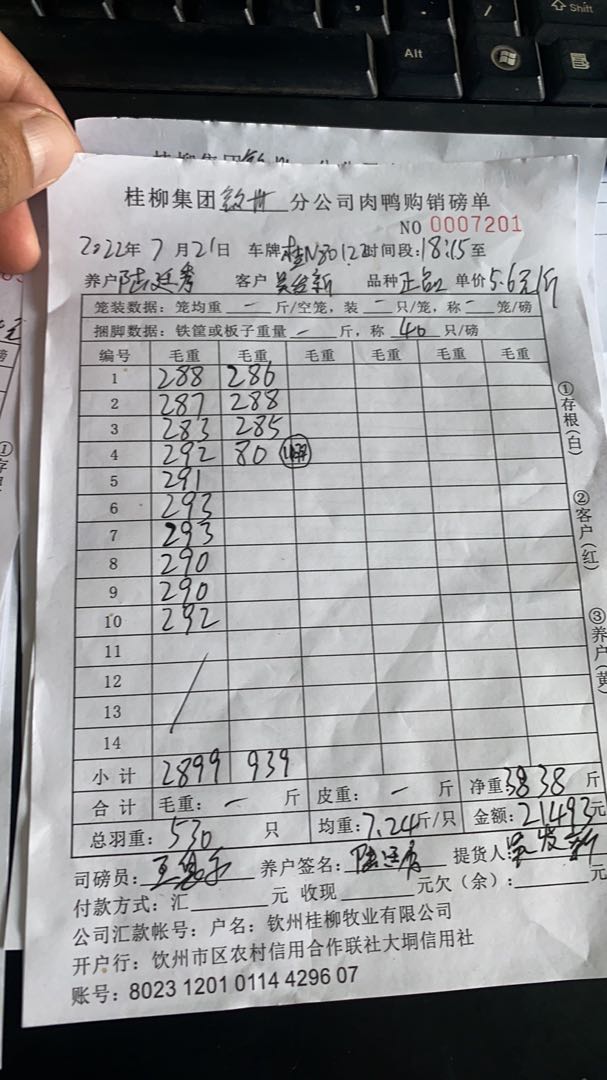 Shift
Alt
桂柳集团钦州分公司肉鸭购销磅单
NO 0007201
2022年7月21日 车牌桂N80122时间段:18:15至
养户陆廷秀 客户 品种正品 单价5.6元/斤
笼装数据: 笼均重 — 斤/空笼, 装 — 只/笼, 称 — 笼/磅
捆脚数据: 铁筐或板子重量 — 斤, 称 40 只/磅
编号 毛重 毛重 毛重 毛重 毛重 毛重
1 288 286
2 287 288
3 283 285
4 292 80
5 291
6 293
7 293
8 290
9 290
10 292
11
12
13
14
小计 2899 939
合计 毛重: — 斤 皮重: — 斤 净重3838斤
总羽重: 530 只 均重:7.24斤/只 金额:21493元
司磅员: 养户签名: 提货人:
付款方式: 汇 元 收现 元欠(余): 元
公司汇款帐号: 户名: 钦州桂柳牧业有限公司
开户行: 钦州市区农村信用合作联社大垌信用社
账号: 8023 1201 0114 4296 07
①存根(白)
②客户(红)
③养户(黄)